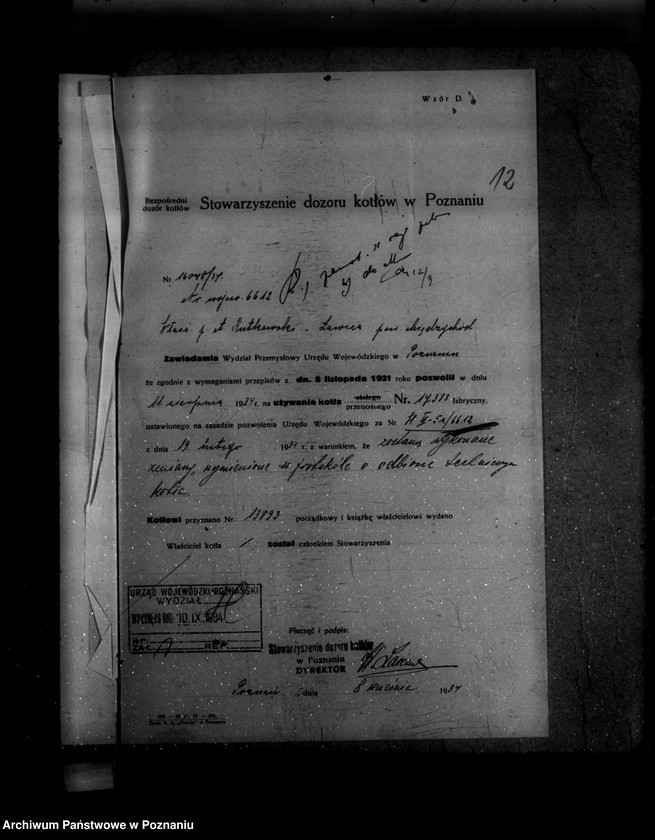 Wzór D.
12
Bezpośredni
dozór kotłów
Stowarzyszenie dozoru kotłów w Poznaniu
Nr. 16048/34.
Nr. wojew. 6612
Rutkowski - Ławica pow. Międzychód
Zawiadamia Wydział Przemysłowy Urzędu Wojewódzkiego w Poznaniu
że zgodnie z wymaganiami przepisów z dn. 8 listopada 1921 roku pozwolił w dniu
11 sierpnia 1934 r. na używanie kotła stałego przenośnego Nr. 17383 fabryczny,
ustawionego na zasadzie pozwolenia Urzędu Wojewódzkiego za Nr
z dnia 19 lutego 1934 r. z warunkiem, że zostaną wykonane
zmiany, wymienione w protokóle o odbiorze
kotła.
Kotłowi przyznano Nr. 13893 porządkowy i książkę właścicielowi wydano
Właściciel kotła / został członkiem Stowarzyszenia
URZĄD WOJEWÓDZKI POZNAŃSKI
WYDZIAŁ
WPŁYNĘŁO DNIA 10. IX. 1934
NR.
ZAŁ. REF.
Pieczęć i podpis:
Stowarzyszenie dozoru kotłów
w Poznaniu
DYREKTOR
Poznań, dnia 8 września 1934
Archiwum Państwowe w Poznaniu